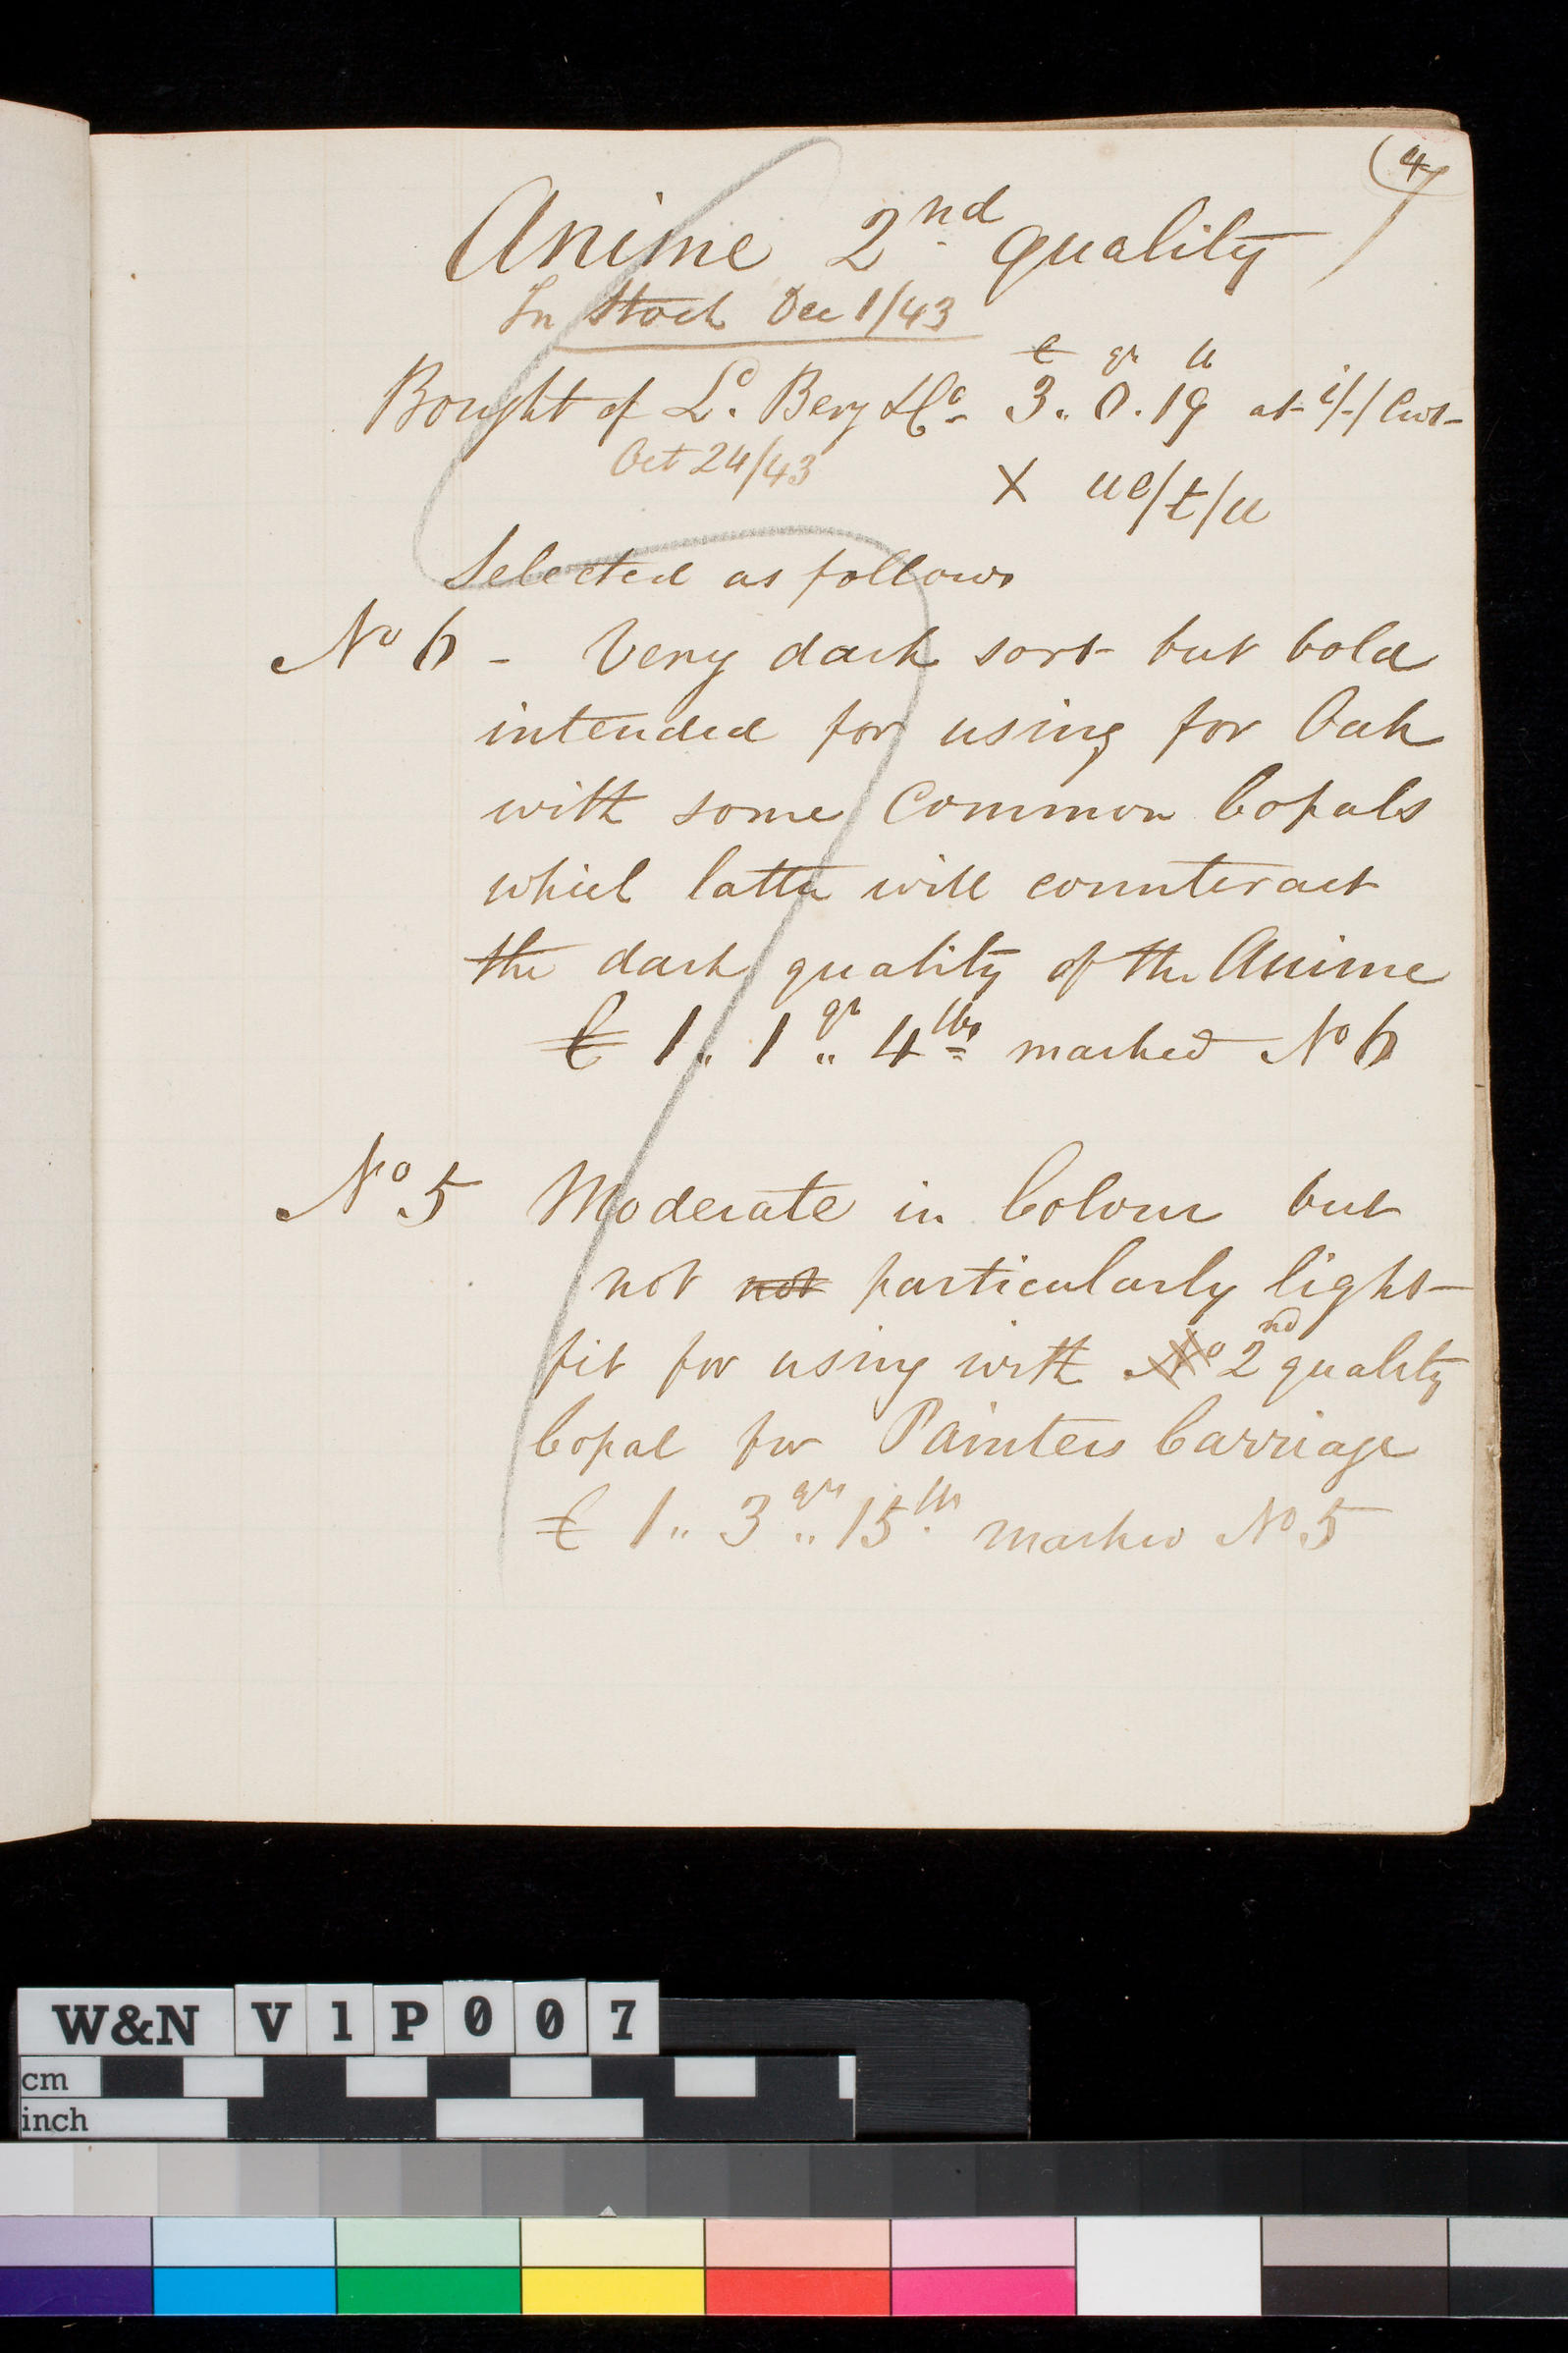 4
Anime 2nd quality
In Stock Dec 1/43
C qr lb
Bought of Lo. Bery & Co 3.. 0. 19 at i/-/ Cwt
Oct 24/43
X ue/t/u
Selected as follows
No 6 - Very dark sort but bold
intended for using for Oak
with some Common Copals
which latter will counteract
the dark quality of the Anime
C 1.. 1 qr.. 4 lbs marked No 6
No. 5 Moderate in Colour but
not not particularly light
fit for using with No 2nd quality
Copal for Painters Carriage
C 1.. 3 qrs.. 15 lbs marked No. 5
W&N V1P007
cm
inch